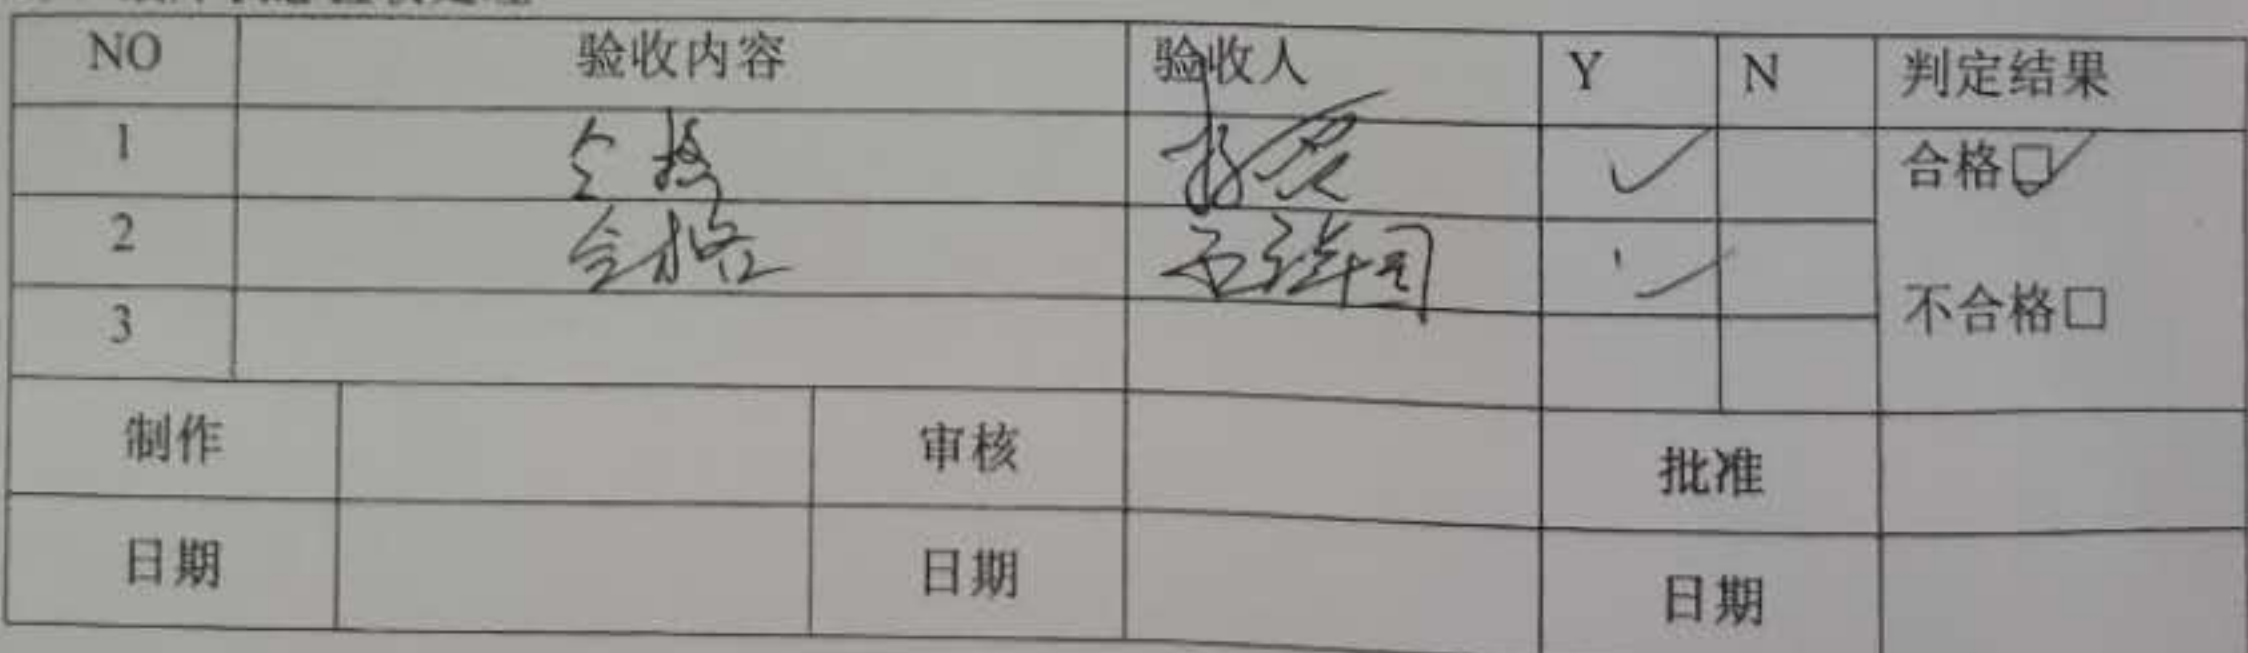 NO 验收内容 验收人 Y N 判定结果
1 合格 ✓ 合格☑
2 合格 ✓
3 不合格□
制作 审核 批准
日期 日期 日期